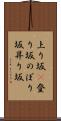 上り坂登
り坂のぼり
坂昇り坂